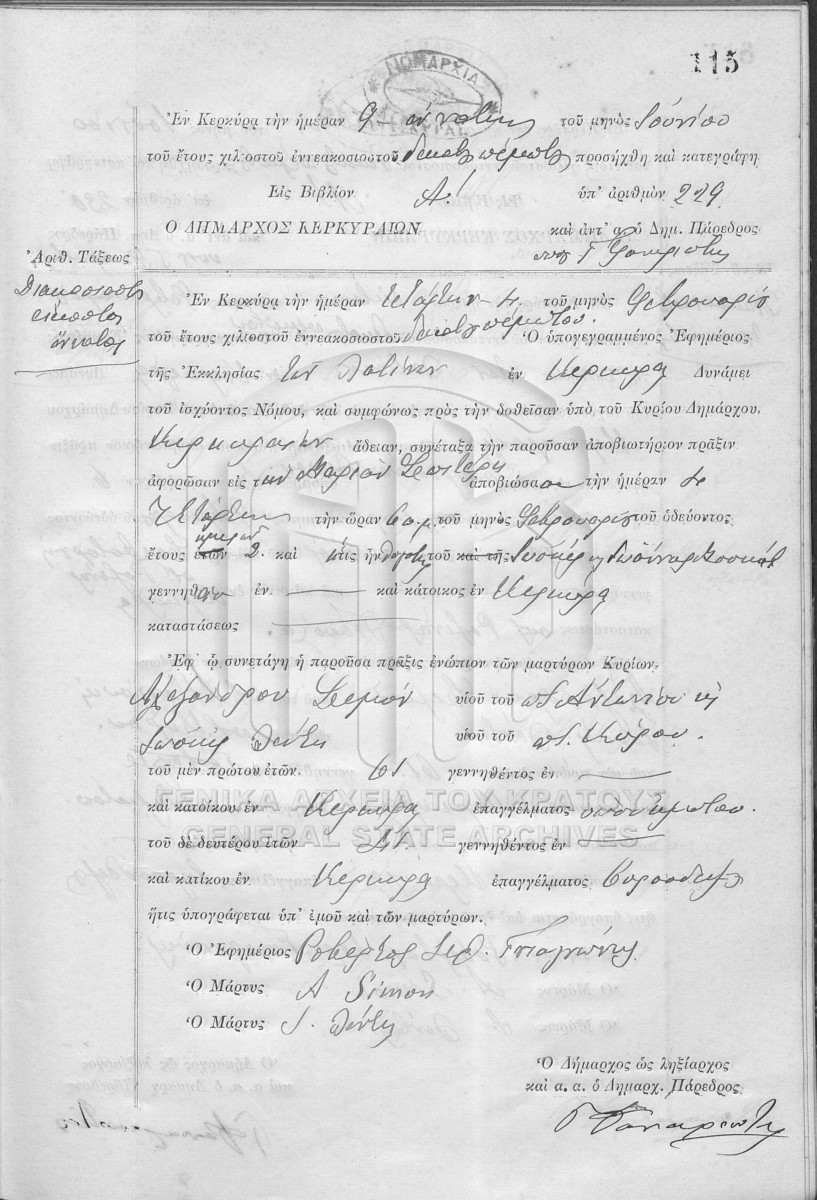 115
ΝΟΜΑΡΧΙΑ
ΚΕΡΚΥΡΑΣ
Ἐν Κερκύρᾳ τὴν ἡμέραν 9 - ἐννάτην τοῦ μηνὸς Ἰουνίου
τοῦ ἔτους χιλιοστοῦ ἐννεακοσιοστοῦ δεκάτου πέμπτου προσήχθη καὶ κατεγράφη
Εἰς Βιβλίον Α! ὑπ' ἀριθμὸν 229
Ο ΔΗΜΑΡΧΟΣ ΚΕΡΚΥΡΑΙΩΝ καὶ ἀντ' α. ὁ Δημ. Πάρεδρος
Ἀριθ. Τάξεως
Διακοσιοστὸς
εἰκοστὸς
ἔννατος
Ἐν Κερκύρᾳ τὴν ἡμέραν Τετάρτην 4. τοῦ μηνὸς Φεβρουαρίου
τοῦ ἔτους χιλιοστοῦ ἐννεακοσιοστοῦ δεκάτου πέμπτου. Ὁ ὑπογεγραμμένος Ἐφημέριος
τῆς Ἐκκλησίας τῶν Λατίνων ἐν Κερκύρᾳ Δυνάμει
τοῦ ἰσχύοντος Νόμου, καὶ συμφώνως πρὸς τὴν δοθεῖσαν ὑπὸ τοῦ Κυρίου Δημάρχου.
Κερκυραίων ἄδειαν, συνέταξα τὴν παροῦσαν ἀποβιωτήριον πρᾶξιν
ἀφορῶσαν εἰς τὴν Μαρίαν ἀποβιώσασαν τὴν ἡμέραν 4
Τετάρτην τὴν ὥραν 6 π.μ. τοῦ μηνὸς Φεβρουαρίου τοῦ ὁδεύοντος
ἔτους ἐτῶν ἡμερῶν 2. καὶ ἥτις ἦν θυγάτηρ τοῦ καὶ τῆς Ἰωσὴφ
γεννηθεῖσα ἐν — καὶ κάτοικος ἐν Κερκύρᾳ
καταστάσεως —
Ἐφ' ᾧ συνετάγη ἡ παροῦσα πρᾶξις ἐνώπιον τῶν μαρτύρων Κυρίων.
Ἀλεξάνδρου Σιμὸν υἱοῦ τοῦ ποτ. Ἀντωνίου κ
Ἰωσὴφ υἱοῦ τοῦ ποτ.
τοῦ μὲν πρώτου ἐτῶν. 61 γεννηθέντος ἐν —
καὶ κατοίκου ἐν Κερκύρᾳ ἐπαγγέλματος
τοῦ δὲ δευτέρου ἐτῶν 41 γεννηθέντος ἐν —
καὶ κατίκου ἐν Κερκύρᾳ ἐπαγγέλματος
ἥτις ὑπογράφεται ὑπ' ἐμοῦ καὶ τῶν μαρτύρων.
Ὁ Ἐφημέριος Ροβέρτος
Ὁ Μάρτυς A Simon
Ὁ Μάρτυς Ι.
Ὁ Δήμαρχος ὡς ληξίαρχος
καὶ α. α. ὁ Δημαρχ. Πάρεδρος
ΓΕΝΙΚΑ ΑΡΧΕΙΑ ΤΟΥ ΚΡΑΤΟΥΣ
GENERAL STATE ARCHIVES